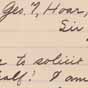 Geo. F. Hoar,
Sir
to solicit
self! I am